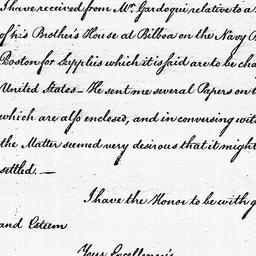 I have received from Mr. Gardoqui relative to a
of his Brother's House at Bilboa on the Navy
Boston for Supplies which it is said are to be cha
United States — He sent me several Papers on t
which are also enclosed, and in conversing wit
the Matter seemed very desirous that it might
settled. —
I have the Honor to be with g
and Esteem
Your Excellency's